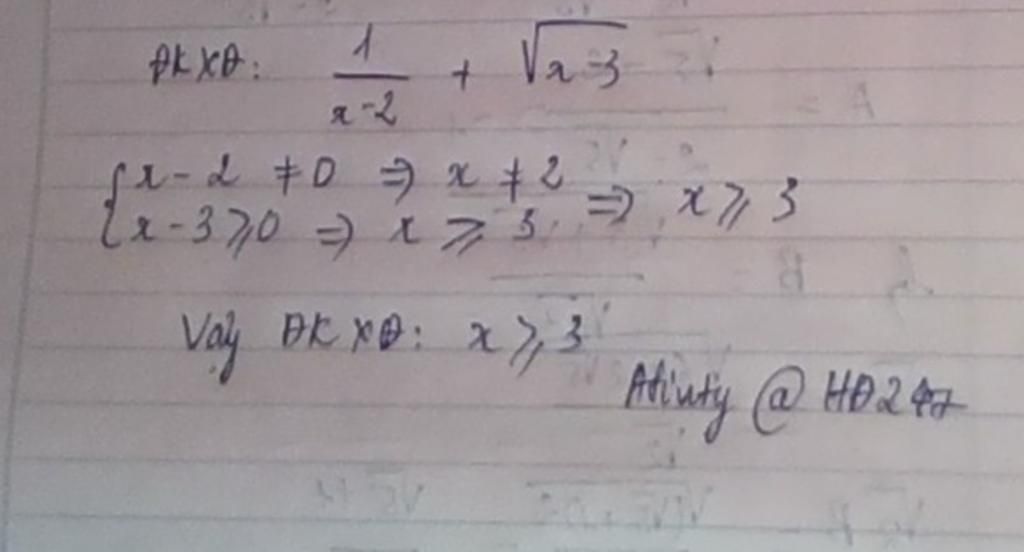 ĐKXĐ: 1/(x-2) + √(x-3)
{x-2 ≠0 ⇒ x ≠2
{x-3⩾0 ⇒ x ⩾ 3 ⇒ x⩾3
Vậy ĐKXĐ: x⩾3
@ HĐ247